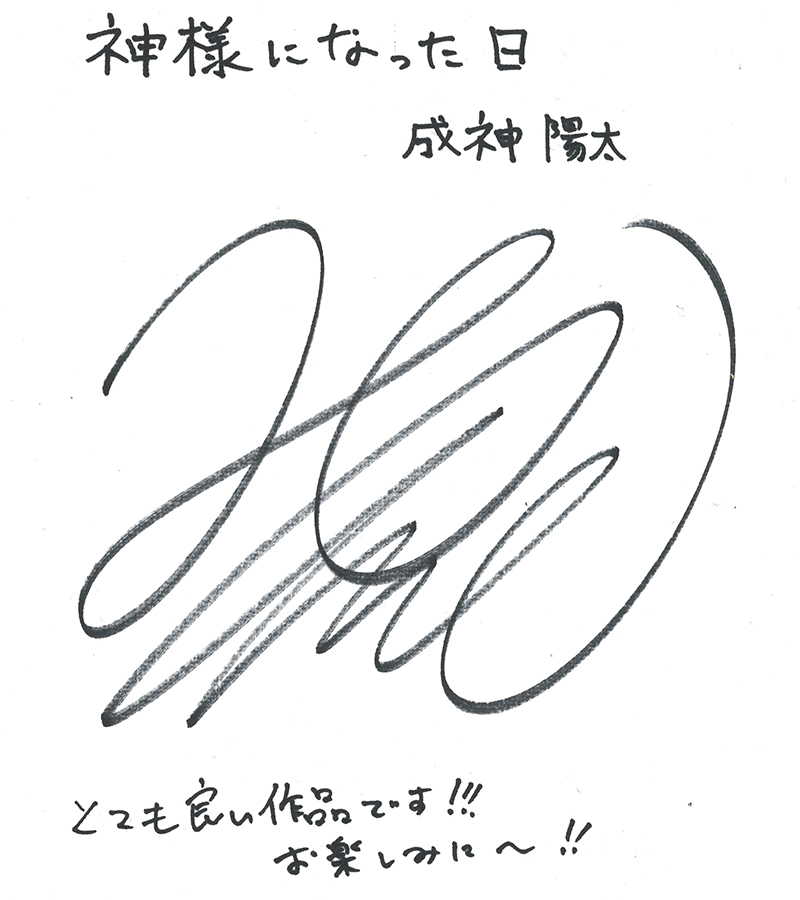 神様になった日
成神陽太
とても良い作品です!!!
お楽しみに〜!!